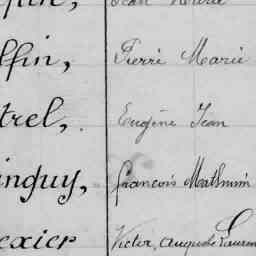 Jean Marie
lfin, Pierré Marie
trel, Eugène Jean
nguy, François Mathurin
exier Victor, Auguste Lauren